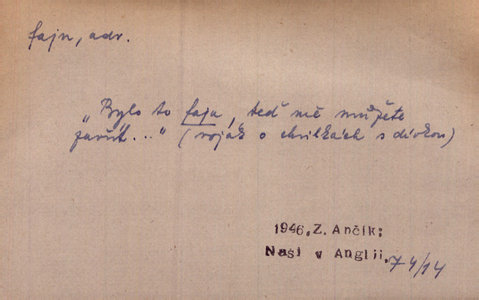 fajn, adv.
„Bylo to fajn, teď mě můžete
zavřít..." (voják o chvilkách s dívkou)
1946, Z. Ančík:
Naši v Anglii. 74/14